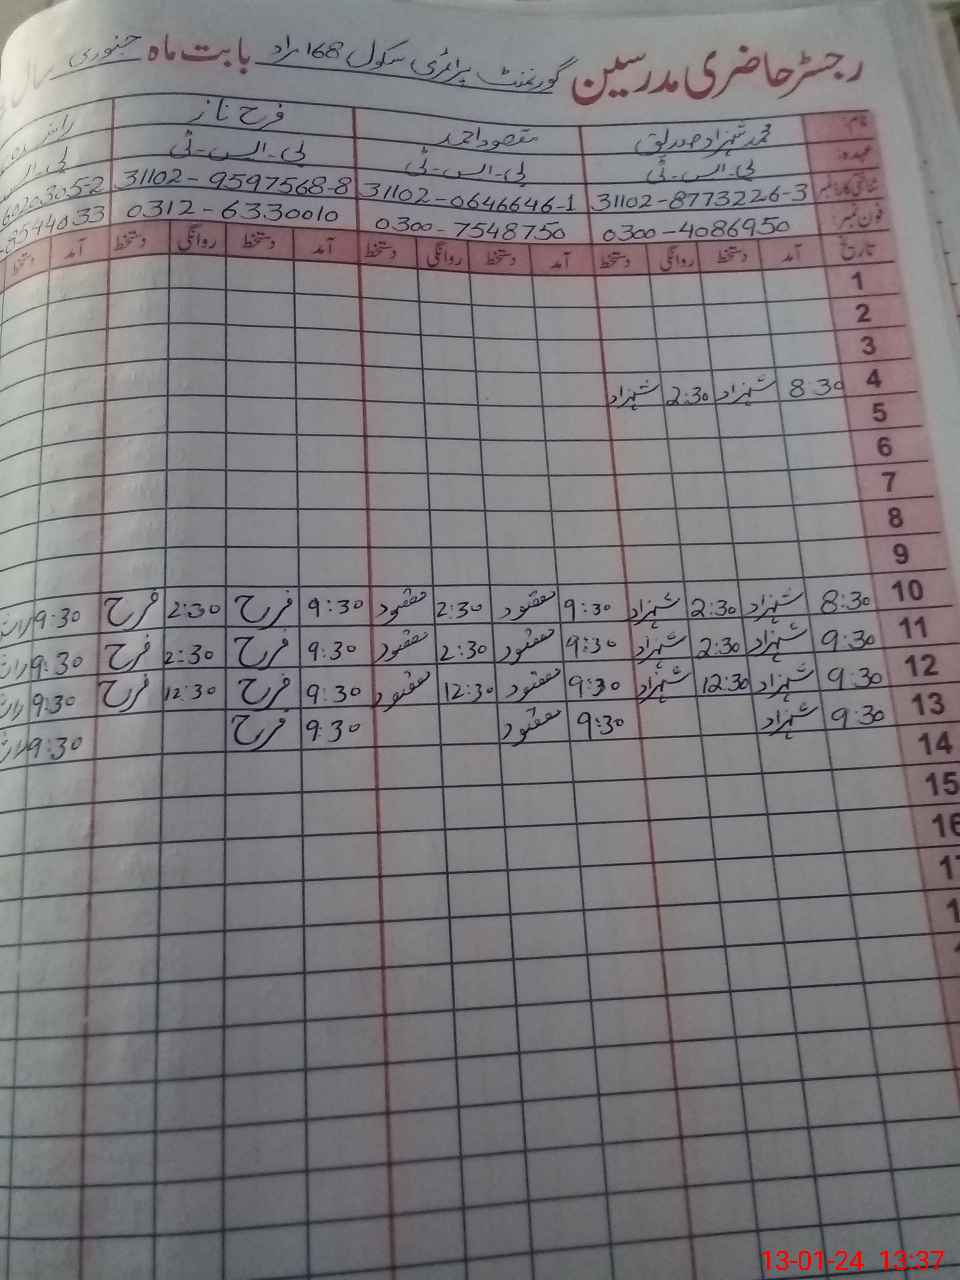 رجسٹر حاضری مدرسین گورنمنٹ پرائمری سکول 168 مراد بابت ماہ جنوری سال
نام: محمد شہزاد صدیق مقصود احمد فرح ناز
عہدہ: پی۔ایس۔ٹی پی۔ایس۔ٹی پی۔ایس۔ٹی
شناختی کارڈ نمبر 31102-8773226-3 31102-0646646-1 31102-9597568-8
فون نمبر: 0300-4086950 0300-7548750 0312-6330010
تاریخ آمد دستخط روانگی دستخط آمد دستخط روانگی دستخط آمد دستخط روانگی دستخط آمد دستخط
1
2
3
4 8:30 شہزاد 2:30 شہزاد
5
6
7
8
9
10 8:30 شہزاد 2:30 شہزاد 9:30 مقصود 2:30 مقصود 9:30 فرح 2:30 فرح 9:30
11 9:30 شہزاد 2:30 شہزاد 9:30 مقصود 2:30 مقصود 9:30 فرح 2:30 فرح 9:30
12 9:30 شہزاد 12:30 شہزاد 9:30 مقصود 12:30 مقصود 9:30 فرح 12:30 فرح 9:30
13 9:30 شہزاد 9:30 مقصود 9:30 فرح 9:30
14
15
16
13-01-24 13:37